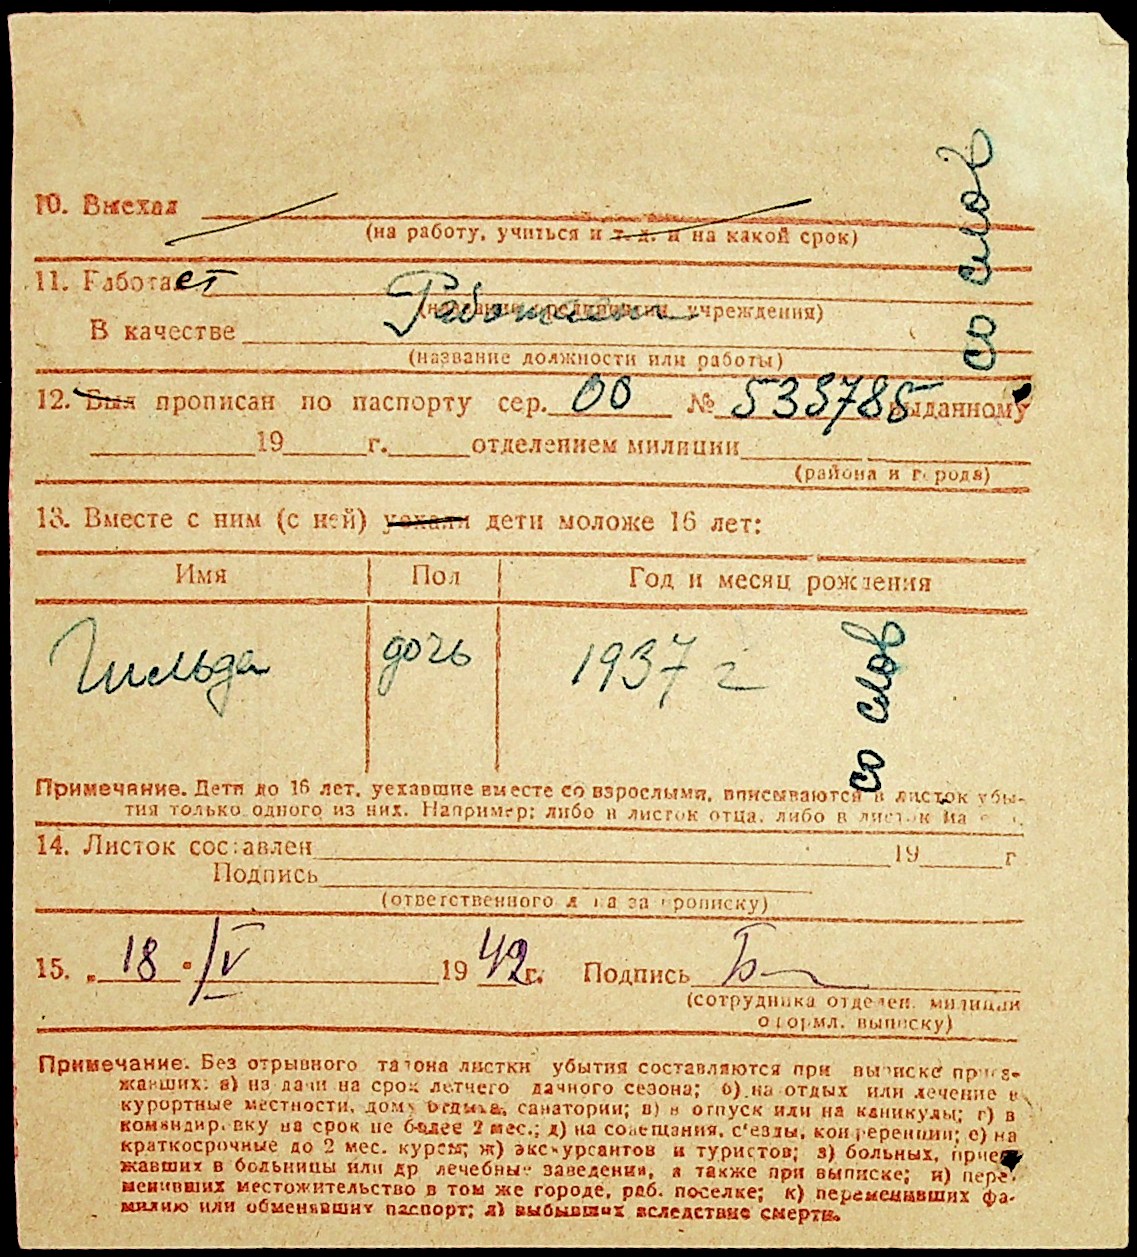 10. Выехал
(на работу, учиться и т. д. и на какой срок)
11. Работает
Работает
(название предприятия, учреждения)
В качестве
(название должности или работы)
со слов
12. Был прописан по паспорту сер. 00 № 535785 выданному
19 г. отделением милиции
(района и города)
13. Вместе с ним (с ней) уехали дети моложе 16 лет:
Имя Пол Год и месяц рождения
Гильда дочь 1937 г
со слов
Примечание. Дети до 16 лет, уехавшие вместе со взрослыми, вписываются в листок убы-
тия только одного из них. Например: либо в листок отца, либо в листок ма
14. Листок составлен 19 г
Подпись
(ответственного за прописку)
15. „18" V 1942 г. Подпись
(сотрудника отделен. милиции
оформл. выписку)
Примечание. Без отрывного талона листки убытия составляются при выписке приез-
жавших: а) из дачи на срок летнего дачного сезона; б) на отдых или лечение в
курортные местности, дома отдыха, санатории; в) в отпуск или на каникулы; г) в
командировку на срок не более 2 мес.; д) на совещания, с'езды, конференции; е) на
краткосрочные до 2 мес. курсы; ж) экскурсантов и туристов; з) больных, приез-
жавших в больницы или др лечебные заведения, а также при выписке; и) пере-
менивших местожительство в том же городе, раб. поселке; к) переменивших фа-
милию или обменявших паспорт; л) выбывших вследствие смерти.